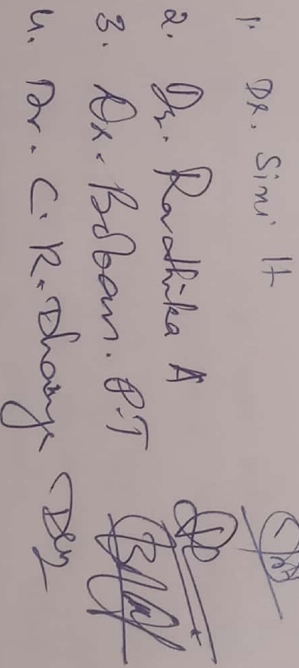 1. Dr. Simi H
2. Dr. Radhika A
3. Dr. Biban. P.T
4. Dr. C. R. Dhanya